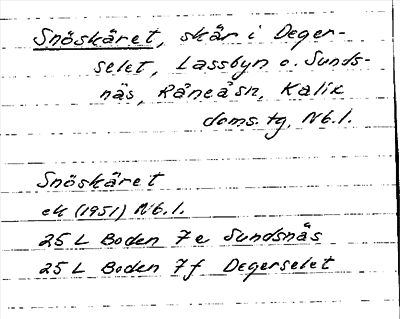 Snöskäret, skär i Deger-
selet, Lassbyn o. Sunds-
näs, Råneå sn, Kalix
doms. tg, Nb. l.
Snöskäret
ek (1951) Nb. l.
25 L Boden 7e Sundsnäs
25 L Boden 7f Degerselet